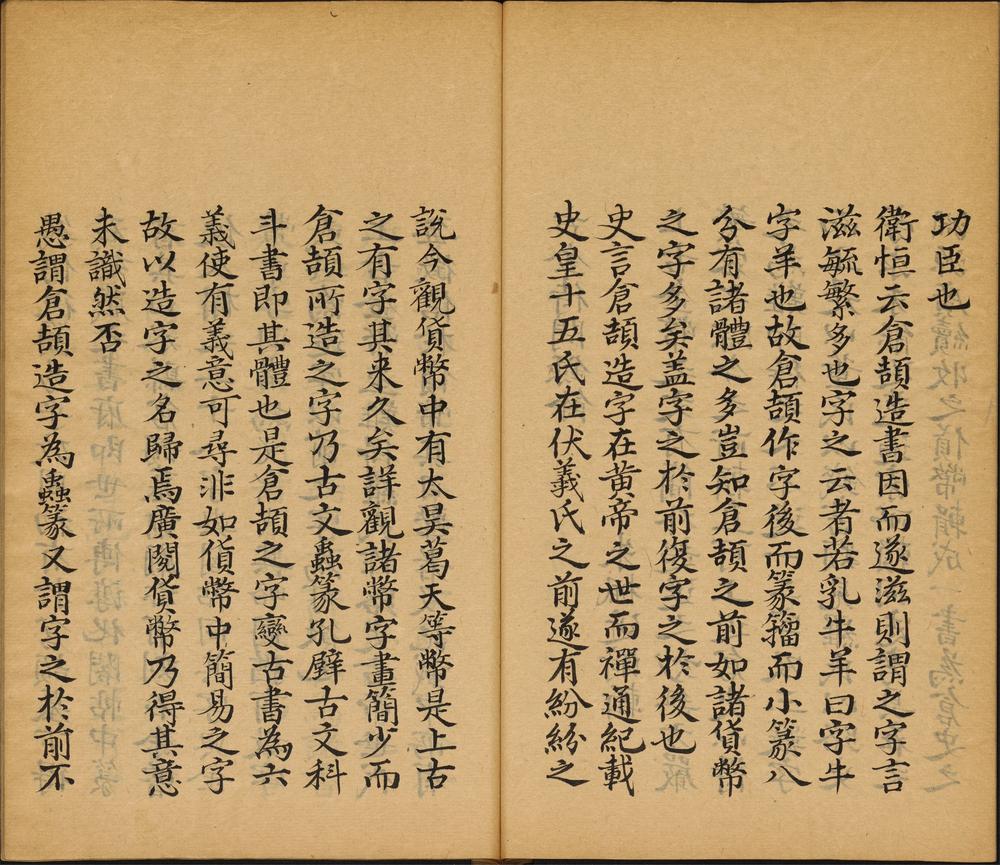 功臣也
衛恒云倉頡造書因而遂滋則謂之字言
滋毓繁多也字之云者若乳牛羊曰字牛
字羊也故倉頡作字後而篆籀而小篆八
分有諸體之多豈知倉頡之前如諸貨幣
之字多矣盖字之於前復字之於後也
史言倉頡造字在黄帝之世而禪通紀載
史皇十五氏在伏羲氏之前遂有紛紛之
說今觀貨幣中有太昊葛天等幣是上古
之有字其来久矣詳觀諸幣字畫簡少而
倉頡所造之字乃古文蟲篆孔壁古文科
斗書即其體也是倉頡之字變古書為六
義使有義意可尋非如貨幣中簡易之字
故以造字之名歸焉廣閱貨幣乃得其意
未識然否
愚謂倉頡造字為蟲篆又謂字之於前不